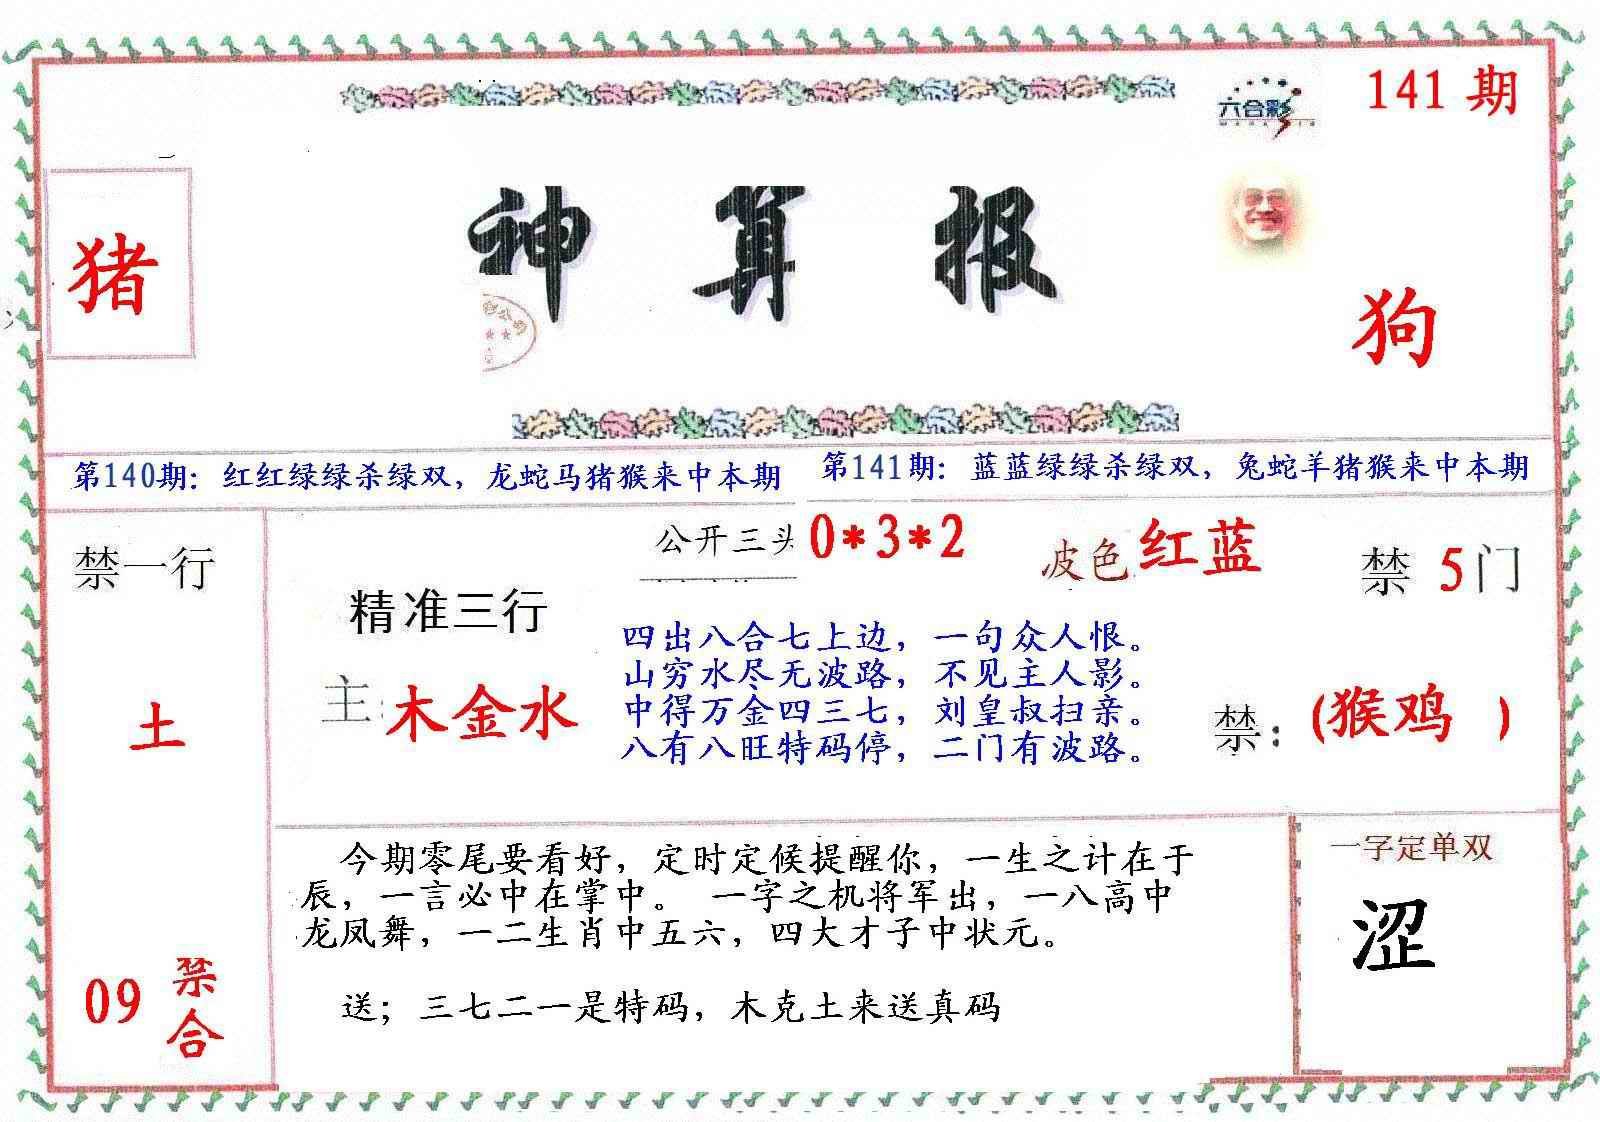 141 期
六合彩
猪
神算报
狗
第140期：红红绿绿杀绿双，龙蛇马猪猴来中本期
第141期：蓝蓝绿绿杀绿双，兔蛇羊猪猴来中本期
禁一行
土
09 禁合
精准三行
主：木金水
公开三头 0*3*2
波色 红蓝
禁 5 门
四出八合七上边，一句众人恨。
山穷水尽无波路，不见主人影。
中得万金四三七，刘皇叔扫亲。
八有八旺特码停，二门有波路。
禁：(猴鸡 )
今期零尾要看好，定时定候提醒你，一生之计在于
辰，一言必中在掌中。 一字之机将军出，一八高中
龙凤舞，一二生肖中五六，四大才子中状元。
送；三七二一是特码，木克土来送真码
一字定单双
涩